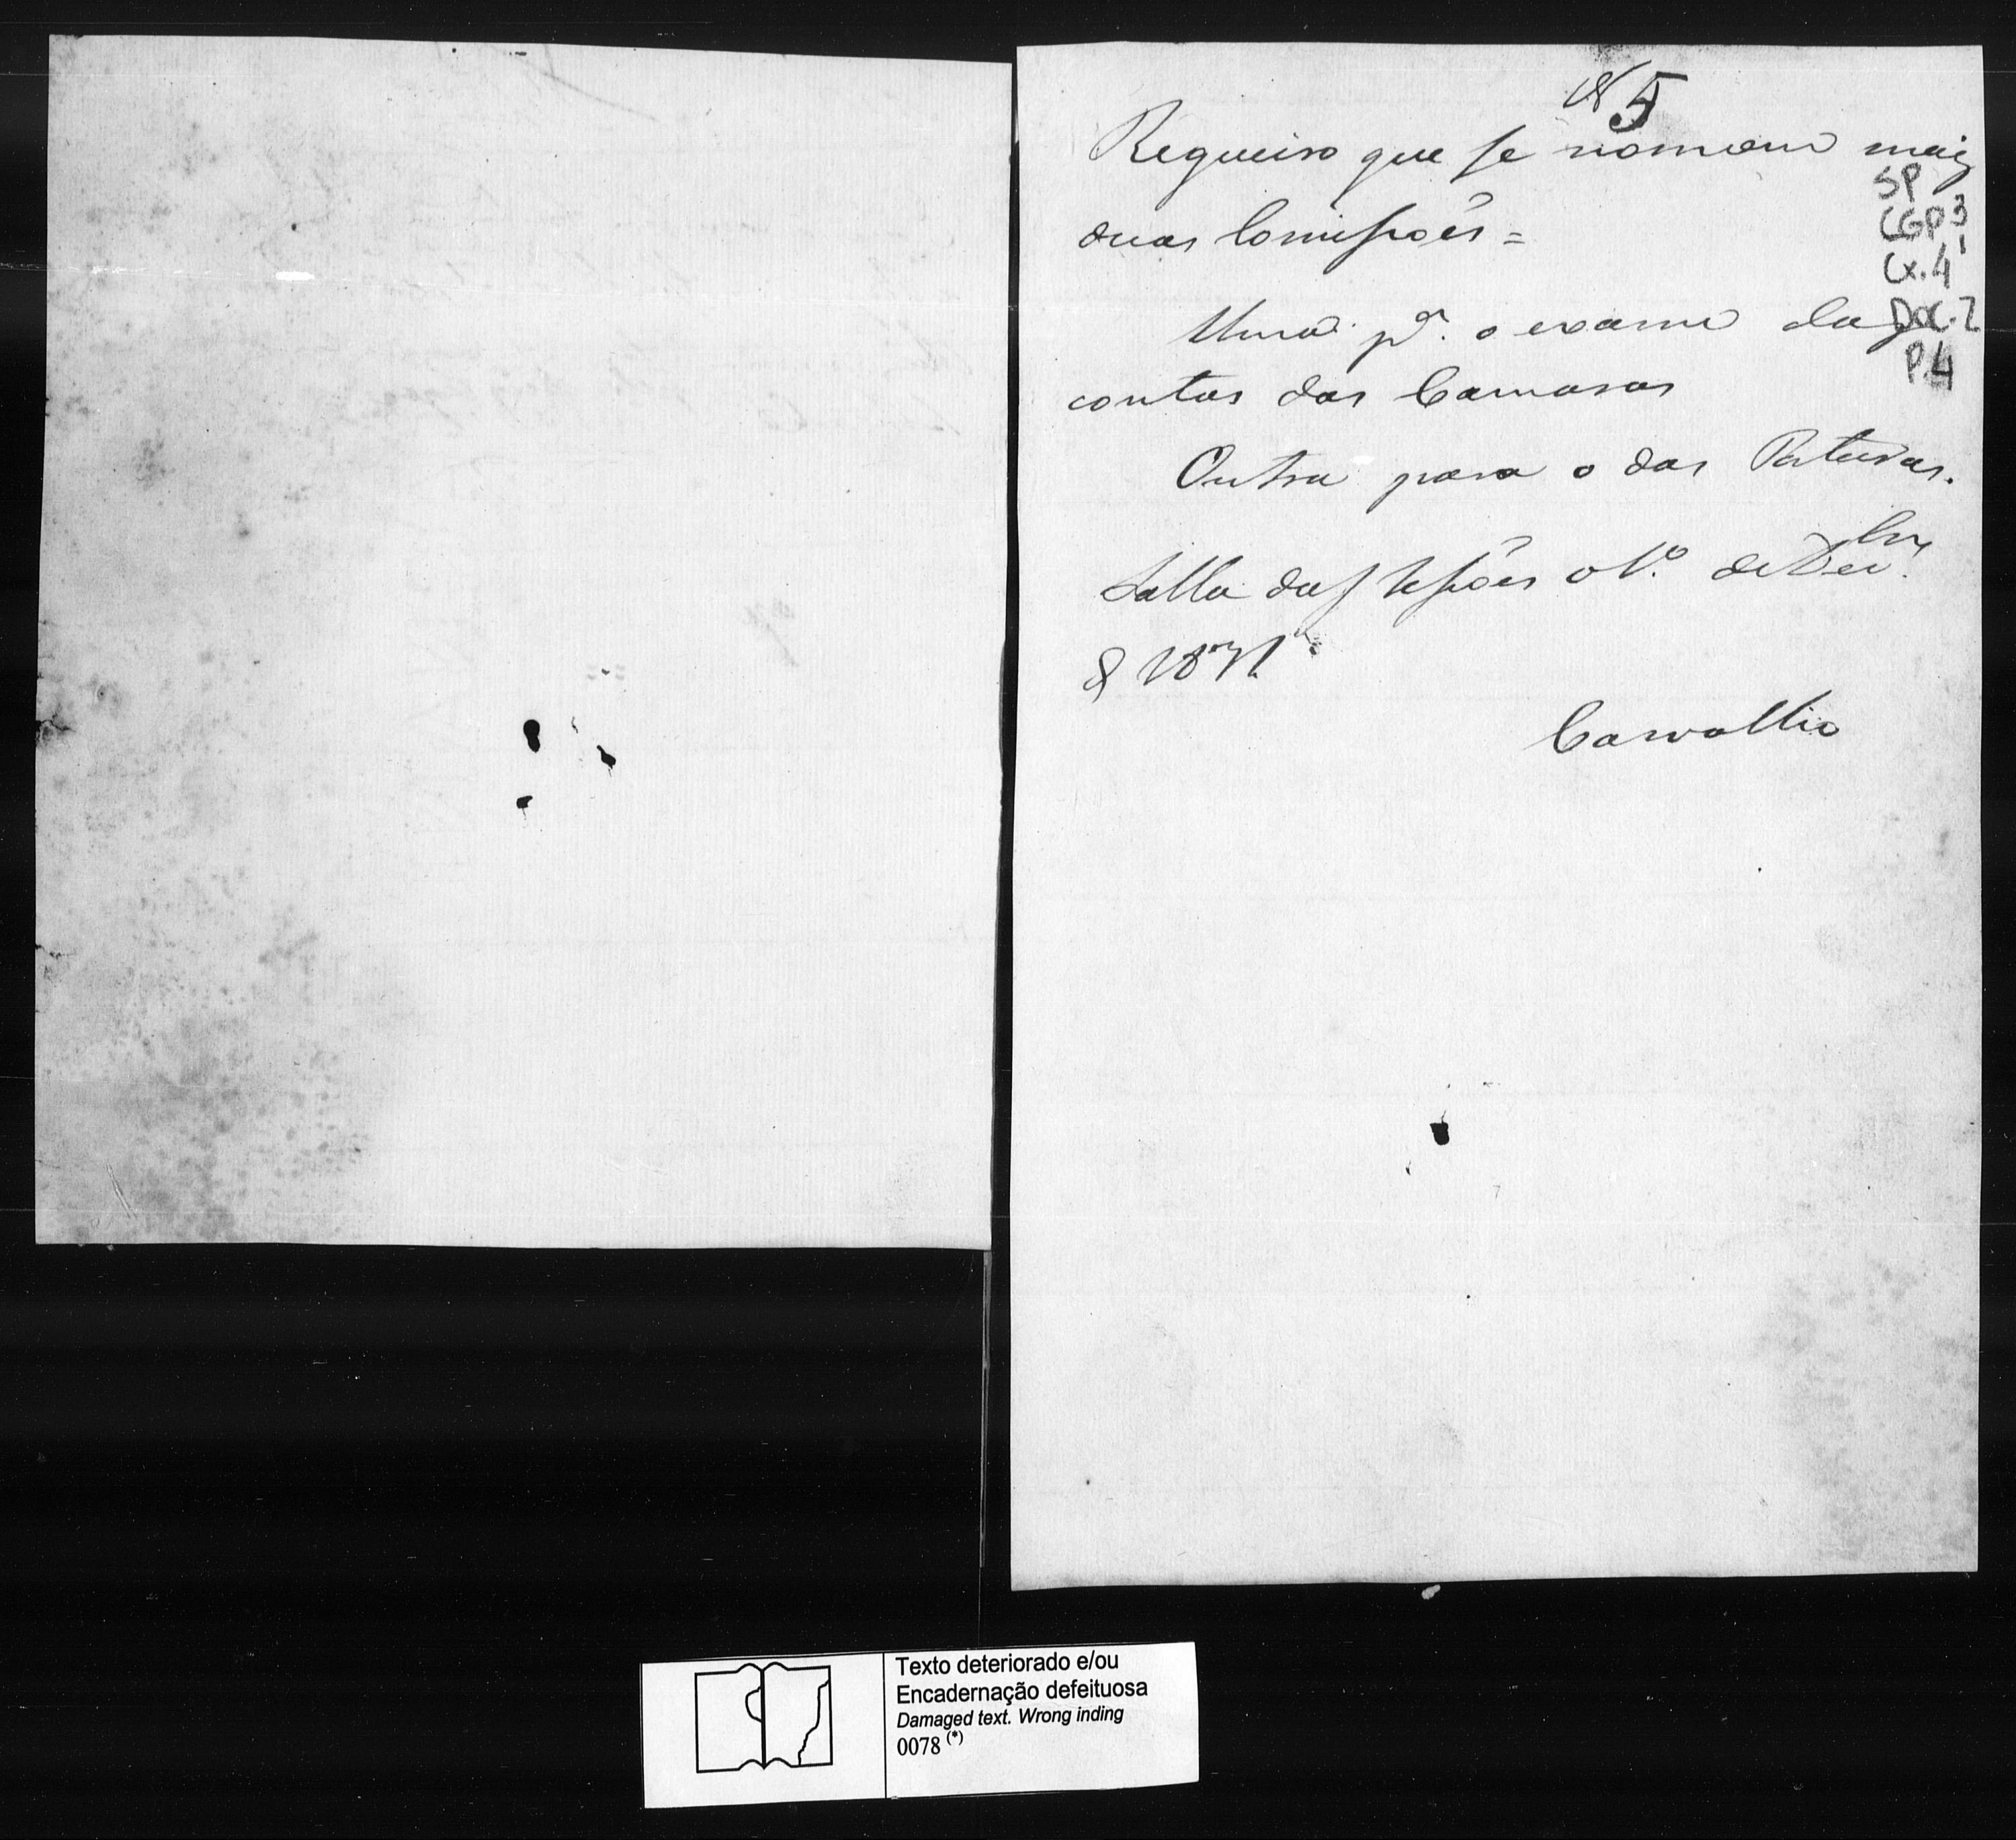 N 5
Requeiro que se nomem mais
duas Comissoẽs =
Uma pª. o exame das
contas das Camaras
Outra para o das Posturas.
Salla das Sessoẽs o 1º. de Dezbro.
SP
CGP3
Cx.41
DOC.2
P.4
Carvalho
Texto deteriorado e/ou
Encadernação defeituosa
Damaged text. Wrong inding
0078 (*)